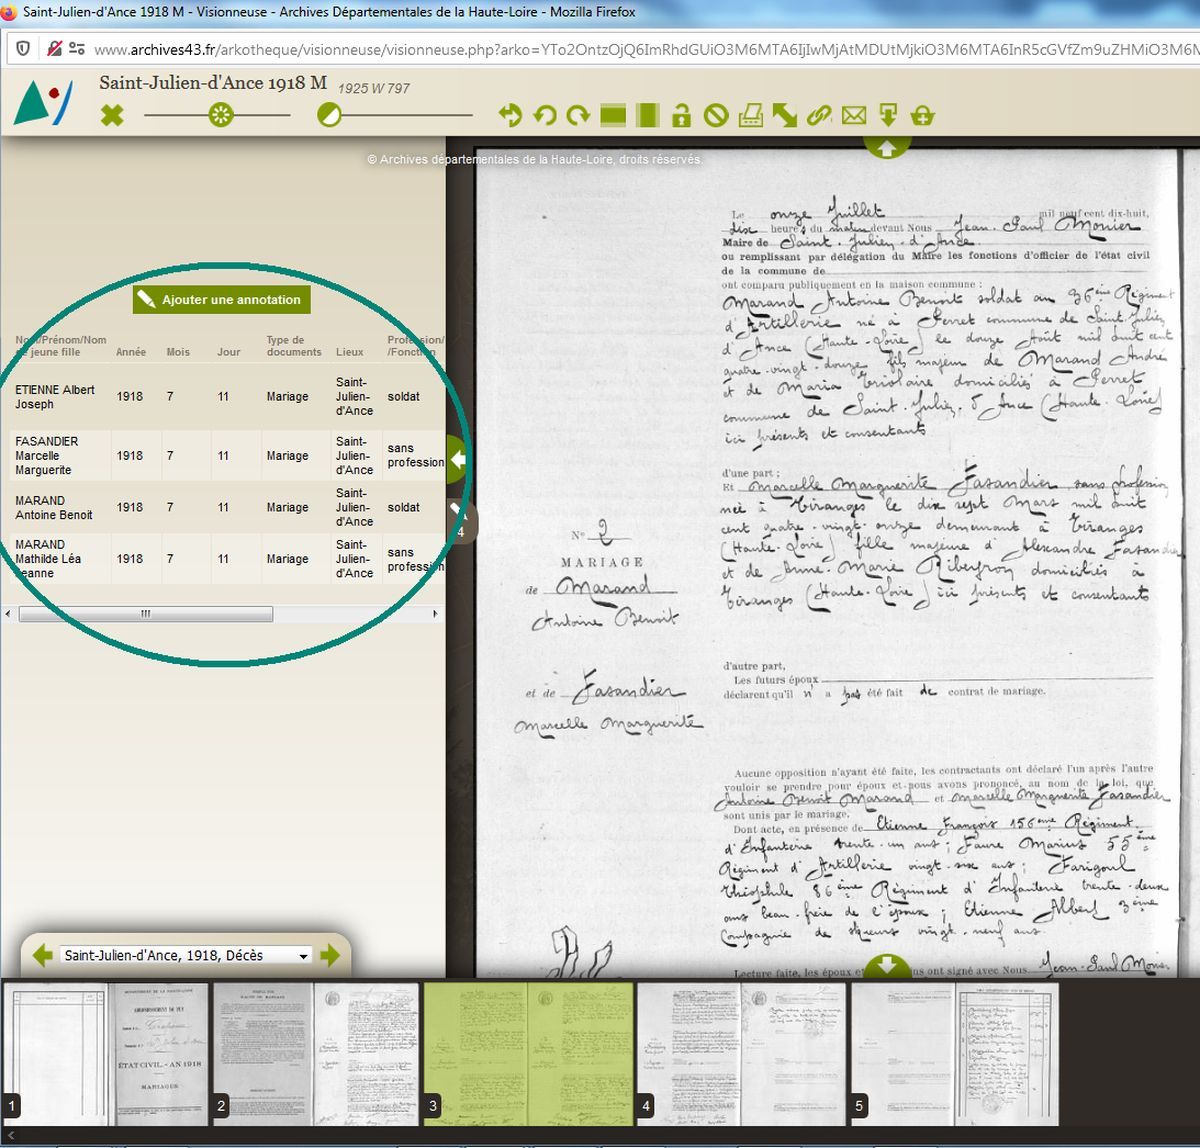 Saint-Julien-d'Ance 1918 M - Visionneuse - Archives Départementales de la Haute-Loire - Mozilla Firefox
www.archives43.fr/arkotheque/visionneuse/visionneuse.php?arko=
Saint-Julien-d'Ance 1918 M 1925 W 797
© Archives départementales de la Haute-Loire, droits réservés.
Ajouter une annotation
Nom/Prénom/Nom de jeune fille Année Mois Jour Type de documents Lieux Profession/ /Fonction
ETIENNE Albert Joseph 1918 7 11 Mariage Saint-Julien-d'Ance soldat
FASANDIER Marcelle Marguerite 1918 7 11 Mariage Saint-Julien-d'Ance sans profession
MARAND Antoine Benoit 1918 7 11 Mariage Saint-Julien-d'Ance soldat
MARAND Mathilde Léa Jeanne 1918 7 11 Mariage Saint-Julien-d'Ance sans profession
4
Le onze Juillet mil neuf cent dix-huit,
dix heures du matin devant Nous Jean-Paul Monier
Maire de Saint-Julien-d'Ance
ou remplissant par délégation du Maire les fonctions d'officier de l'état civil
de la commune de
ont comparu publiquement en la maison commune :
Marand Antoine Benoit soldat au 36ème Régiment
d'Artillerie né à Perret commune de Saint-Julien
d'Ance (Haute-Loire) le douze Août mil huit cent
quatre-vingt-douze fils majeur de Marand André
et de Maria Triolaire domiciliés à Perret
commune de Saint-Julien-d'Ance (Haute-Loire)
ici présents et consentants
d'une part ;
Et Marcelle Marguerite Fasandier sans profession
née à Tiranges le dix sept Mars mil huit
cent quatre-vingt-onze demeurant à Tiranges
(Haute-Loire) fille majeure d'Alexandre Fasandier
et de Anne-Marie Ribeyron domiciliés à
Tiranges (Haute-Loire) ici présents et consentants
N° 2
MARIAGE
de Marand
Antoine Benoit
et de Fasandier
Marcelle Marguerite
d'autre part,
Les futurs époux
déclarent qu'il n'a pas été fait de contrat de mariage.
Aucune opposition n'ayant été faite, les contractants ont déclaré l'un après l'autre
vouloir se prendre pour époux et nous avons prononcé, au nom de la loi, que
Antoine Benoit Marand et Marcelle Marguerite Fasandier
sont unis par le mariage.
Dont acte, en présence de Etienne François 156ème Régiment
d'Infanterie trente-un ans ; Faure Marius 55ème
Régiment d'Artillerie vingt-six ans ; Farigoul
Théophile 86ème Régiment d'Infanterie trente-deux
ans beau-frère de l'époux ; Etienne Albert 3ème
Compagnie de skieurs vingt-neuf ans.
Lecture faite, les époux et ont signé avec Nous Jean-Paul Monier
Saint-Julien-d'Ance, 1918, Décès
ÉTAT CIVIL - AN 1918
MARIAGES
1
2
3
4
5